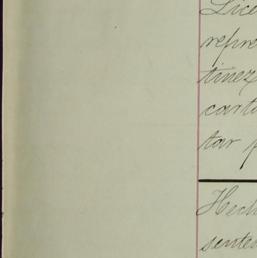 Lice
repre
tinez
carta
tar p
Hech
senten